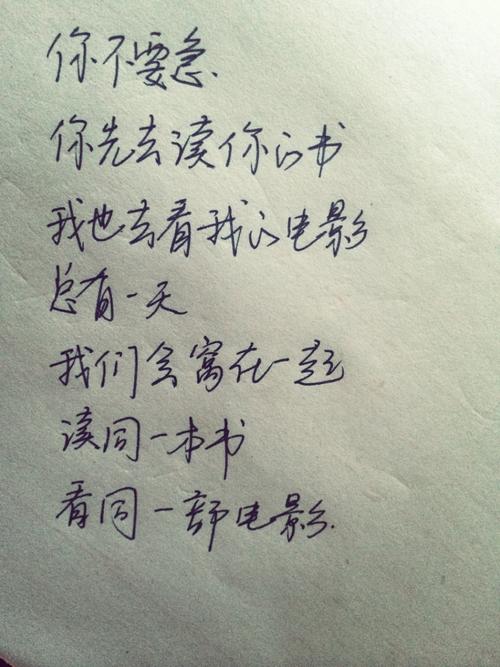 你不要急.
你先去读你的书
我也去看我的电影
总有一天
我们会窝在一起
读同一本书
看同一部电影.